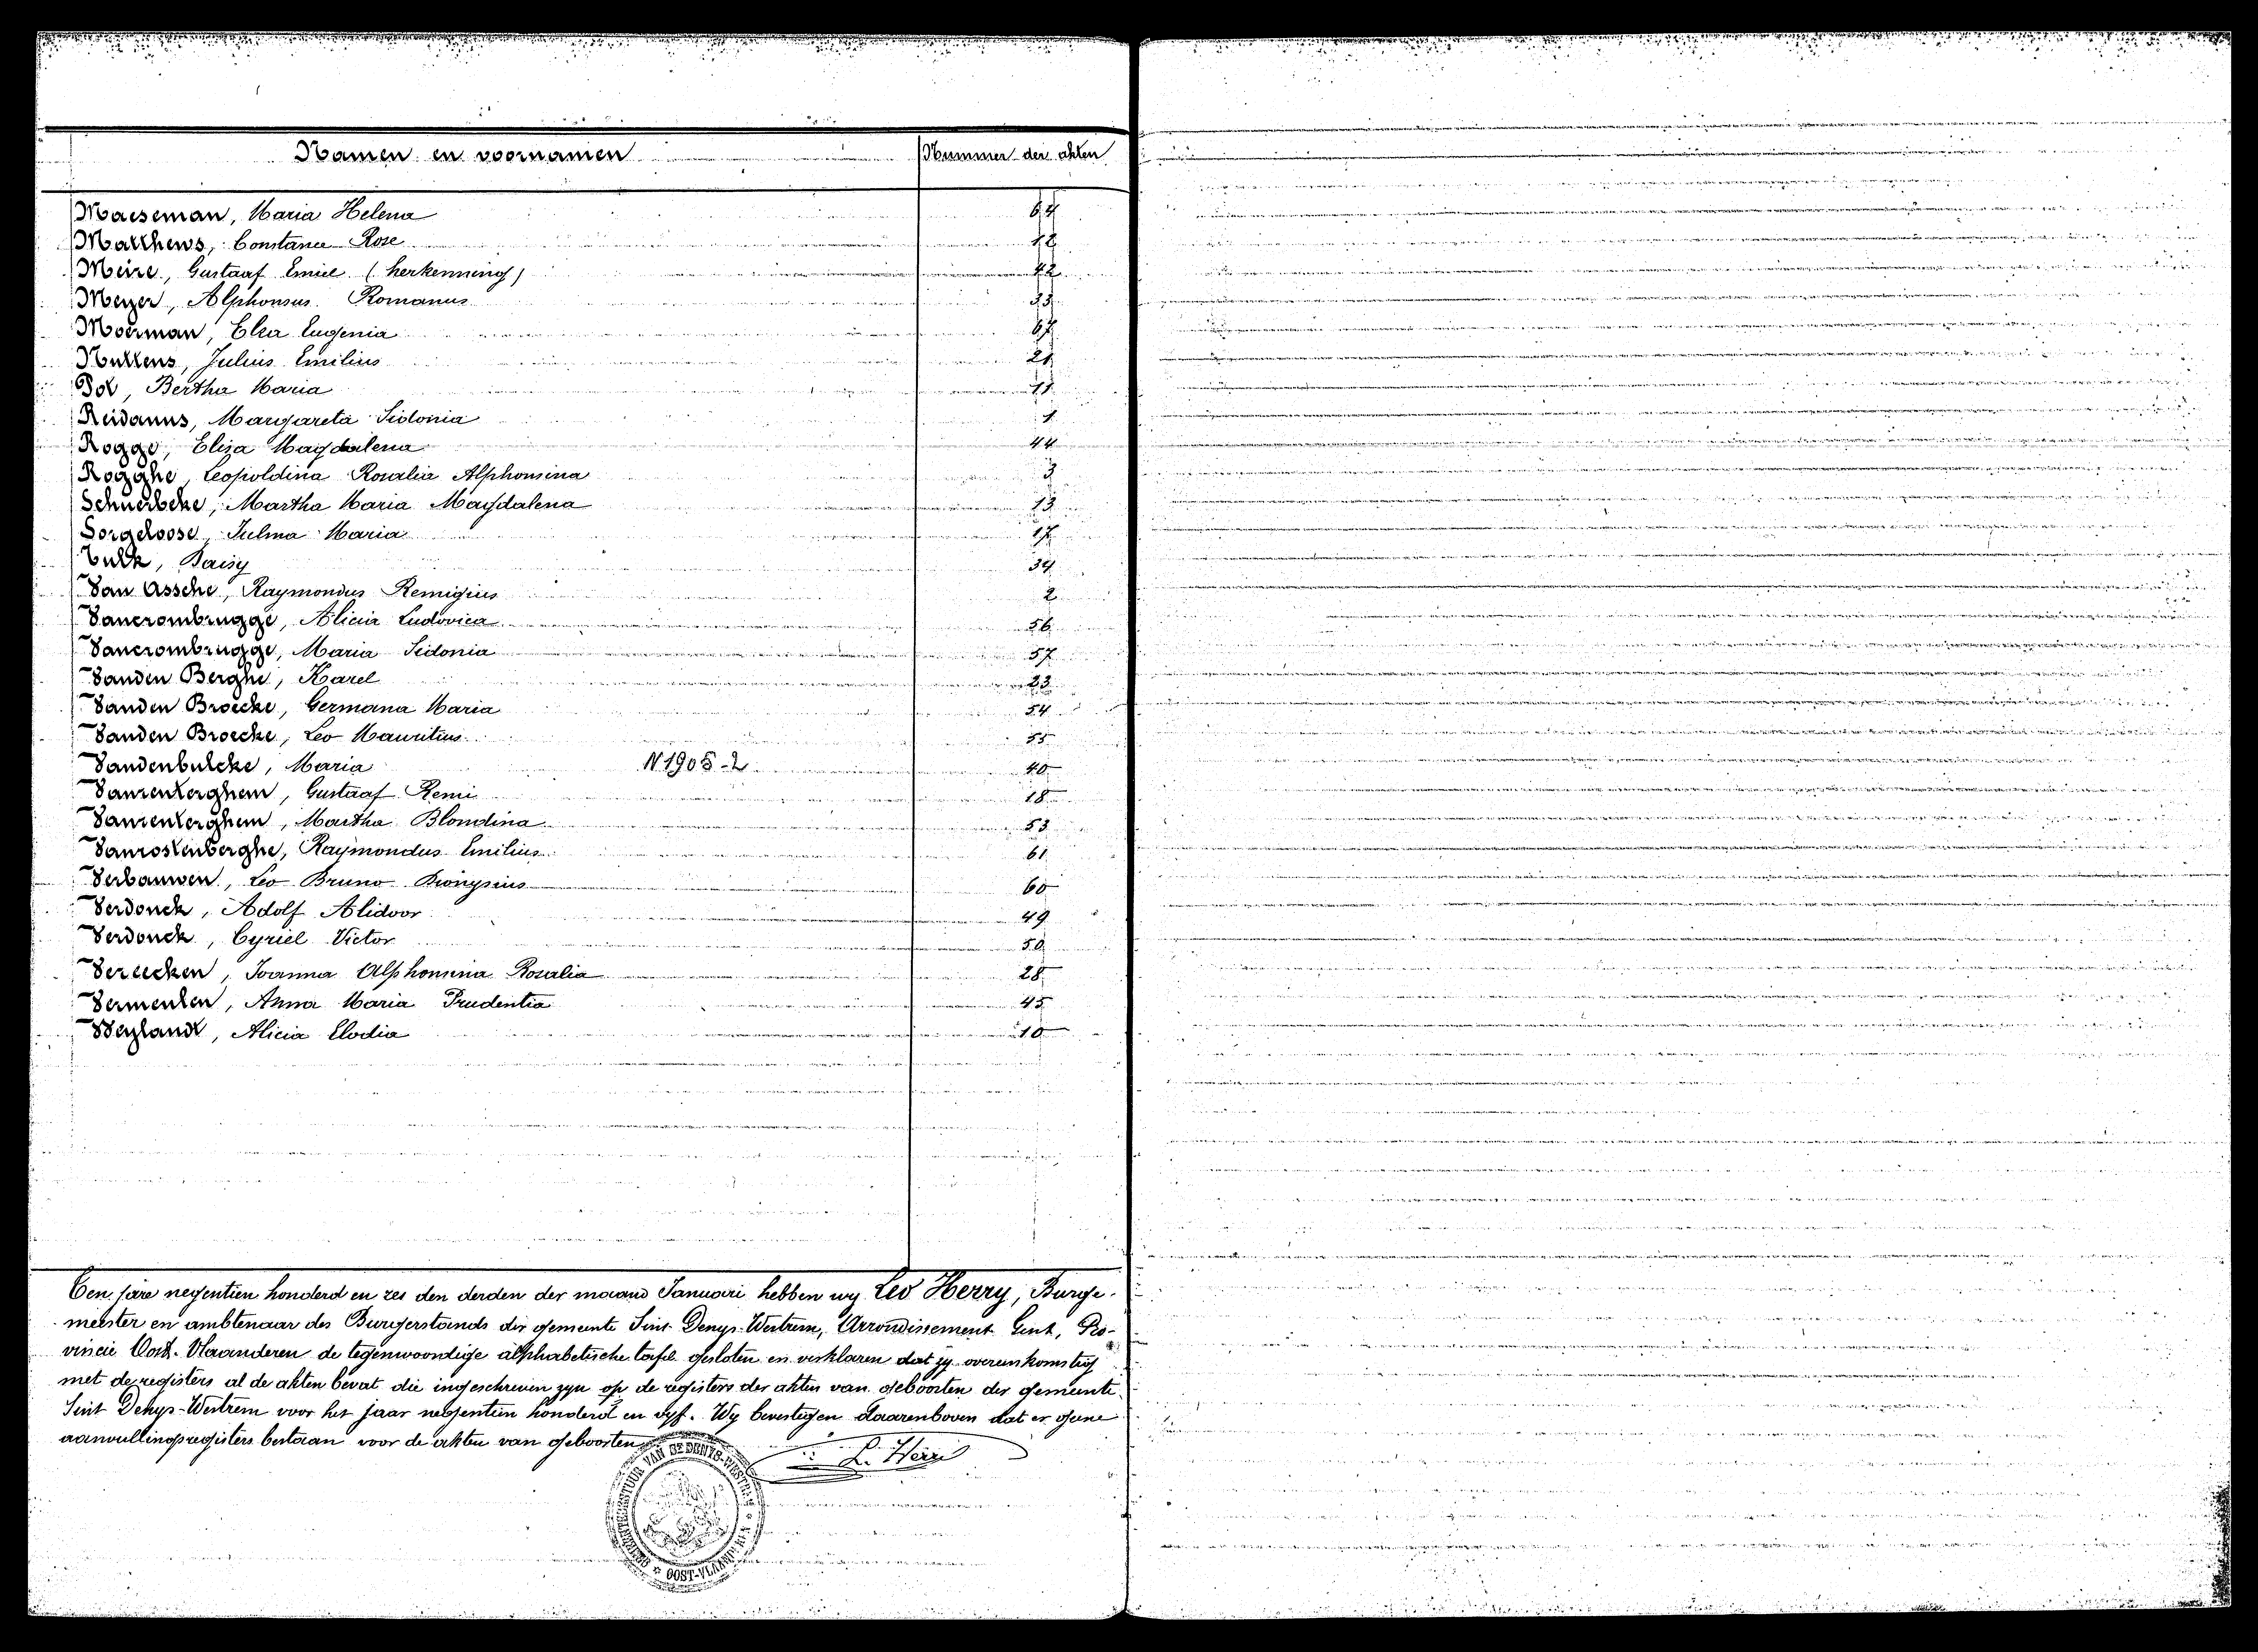 Namen en voornamen Nummer der akten
Maeseman, Maria Helena 64
Matthews, Constance Rose 12
Meire, Gustaaf Emiel (herkenning) 42
Meyer, Alphonsus Romanus 33
Moerman, Elza Eugenia 67
Nuttens, Julius Emilius 21
Pol, Bertha Maria 11
Reidanus, Margareta Sidonia 1
Rogge, Eliza Magdalena 44
Rogghe, Leopoldina Rosalia Alphonsina 3
Schuerbeke, Martha Maria Magdalena 13
Sorgeloose, Julma Maria 17
Tulk, Daisy 34
Van Assche, Raymondus Remigius 2
Vancrombrugge, Alicia Ludovica 56
Vancrombrugge, Maria Sidonia 57
Vanden Berghe, Karel 23
Vanden Broecke, Germana Maria 54
Vanden Broecke, Leo Mauritius 55
Vandenbulcke, Maria N1905-2 40
Vanrenterghem, Gustaaf Remi 18
Vanrenterghem, Martha Blondina 53
Vanrostenberghe, Raymondus Emilius 61
Verbauwen, Leo Bruno Dionysius 60
Verdonck, Adolf Alidoor 49
Verdonck, Cyriel Victor 50
Vereecken, Joanna Alphonsina Rosalia 28
Vermeulen, Anna Maria Prudentia 45
Weylandt, Alicia Elodia 10
Ten jare negentien honderd en zes den derden der maand Januari hebben wy Leo Herry, Burge-
meester en ambtenaar des Burgerstands der gemeente Sint-Denys-Westrem, Arrondissement Gent, Pro-
vincie Oost-Vlaanderen de tegenwoordige alphabetische tafel gesloten en verklaren dat zy overeenkomstig
met de registers al de akten bevat die ingeschreven zyn op de registers der akten van geboorten der gemeente
Sint Denys-Westrem voor het jaar negentien honderd en vyf. Wy bevestigen daarenboven dat er geene
aanvullingsregisters bestaan voor de akten van geboorten
L. Herri
GEMEENTEBESTUUR VAN ST DENYS-WESTREM
OOST-VLAAND